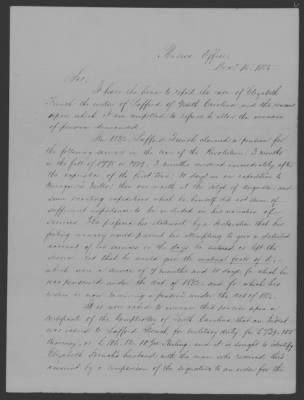 Pension Office,
Sir,
I have the honor to report the case of Elizabeth
French the widow of Safford of South Carolina and the reasons
upon which I am compelled to refuse to allow the increase
of pension demanded.
In 1832 Safford French claimed a pension for
the following services in the war of the Revolution: 3 months
in the fall of 1778 or 1779, 3 months served immediately after
the expiration of the first term; 10 days on an expedition to
; then one month at the siege of Augusta and
some scouting expeditions which he himself did not deem of
sufficient importance to be included in his narrative of
service. He prefaced his statement by a declaration that his
failing memory would prevent his attempting to give a detailed
account of his services or the days he entered or left the
service but that he would give the actual facts of it
which were a service of 7 months and 10 days for which he
was pensioned under the act of 1832 and for which his
widow is now receiving a pension under the act of
It is now asked to increase this pension upon a
certificate of the Comptroller of South Carolina that an Indent
was issued to Safford French for military duty for
Currency, or Sterling, and it is sought to identify
Elizabeth French's husband with the man who received this
amount by a comparison of the signature to an order for the